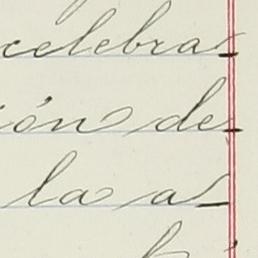 celebra-
ión de
la a-